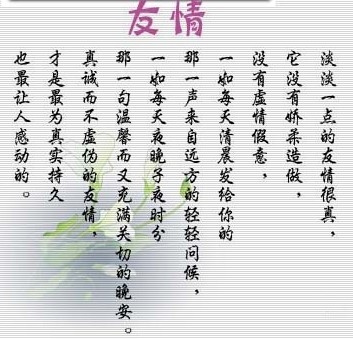 友情
淡淡一点的友情很真，
它没有娇柔造做，
没有虚情假意，
一如每天清晨发给你的
那一声来自远方的轻轻问候，
一如每天夜晚子夜时分
那一句温馨而又充满关切的晚安。
真诚而不虚伪的友情，
才是最为真实持久
也最让人感动的。